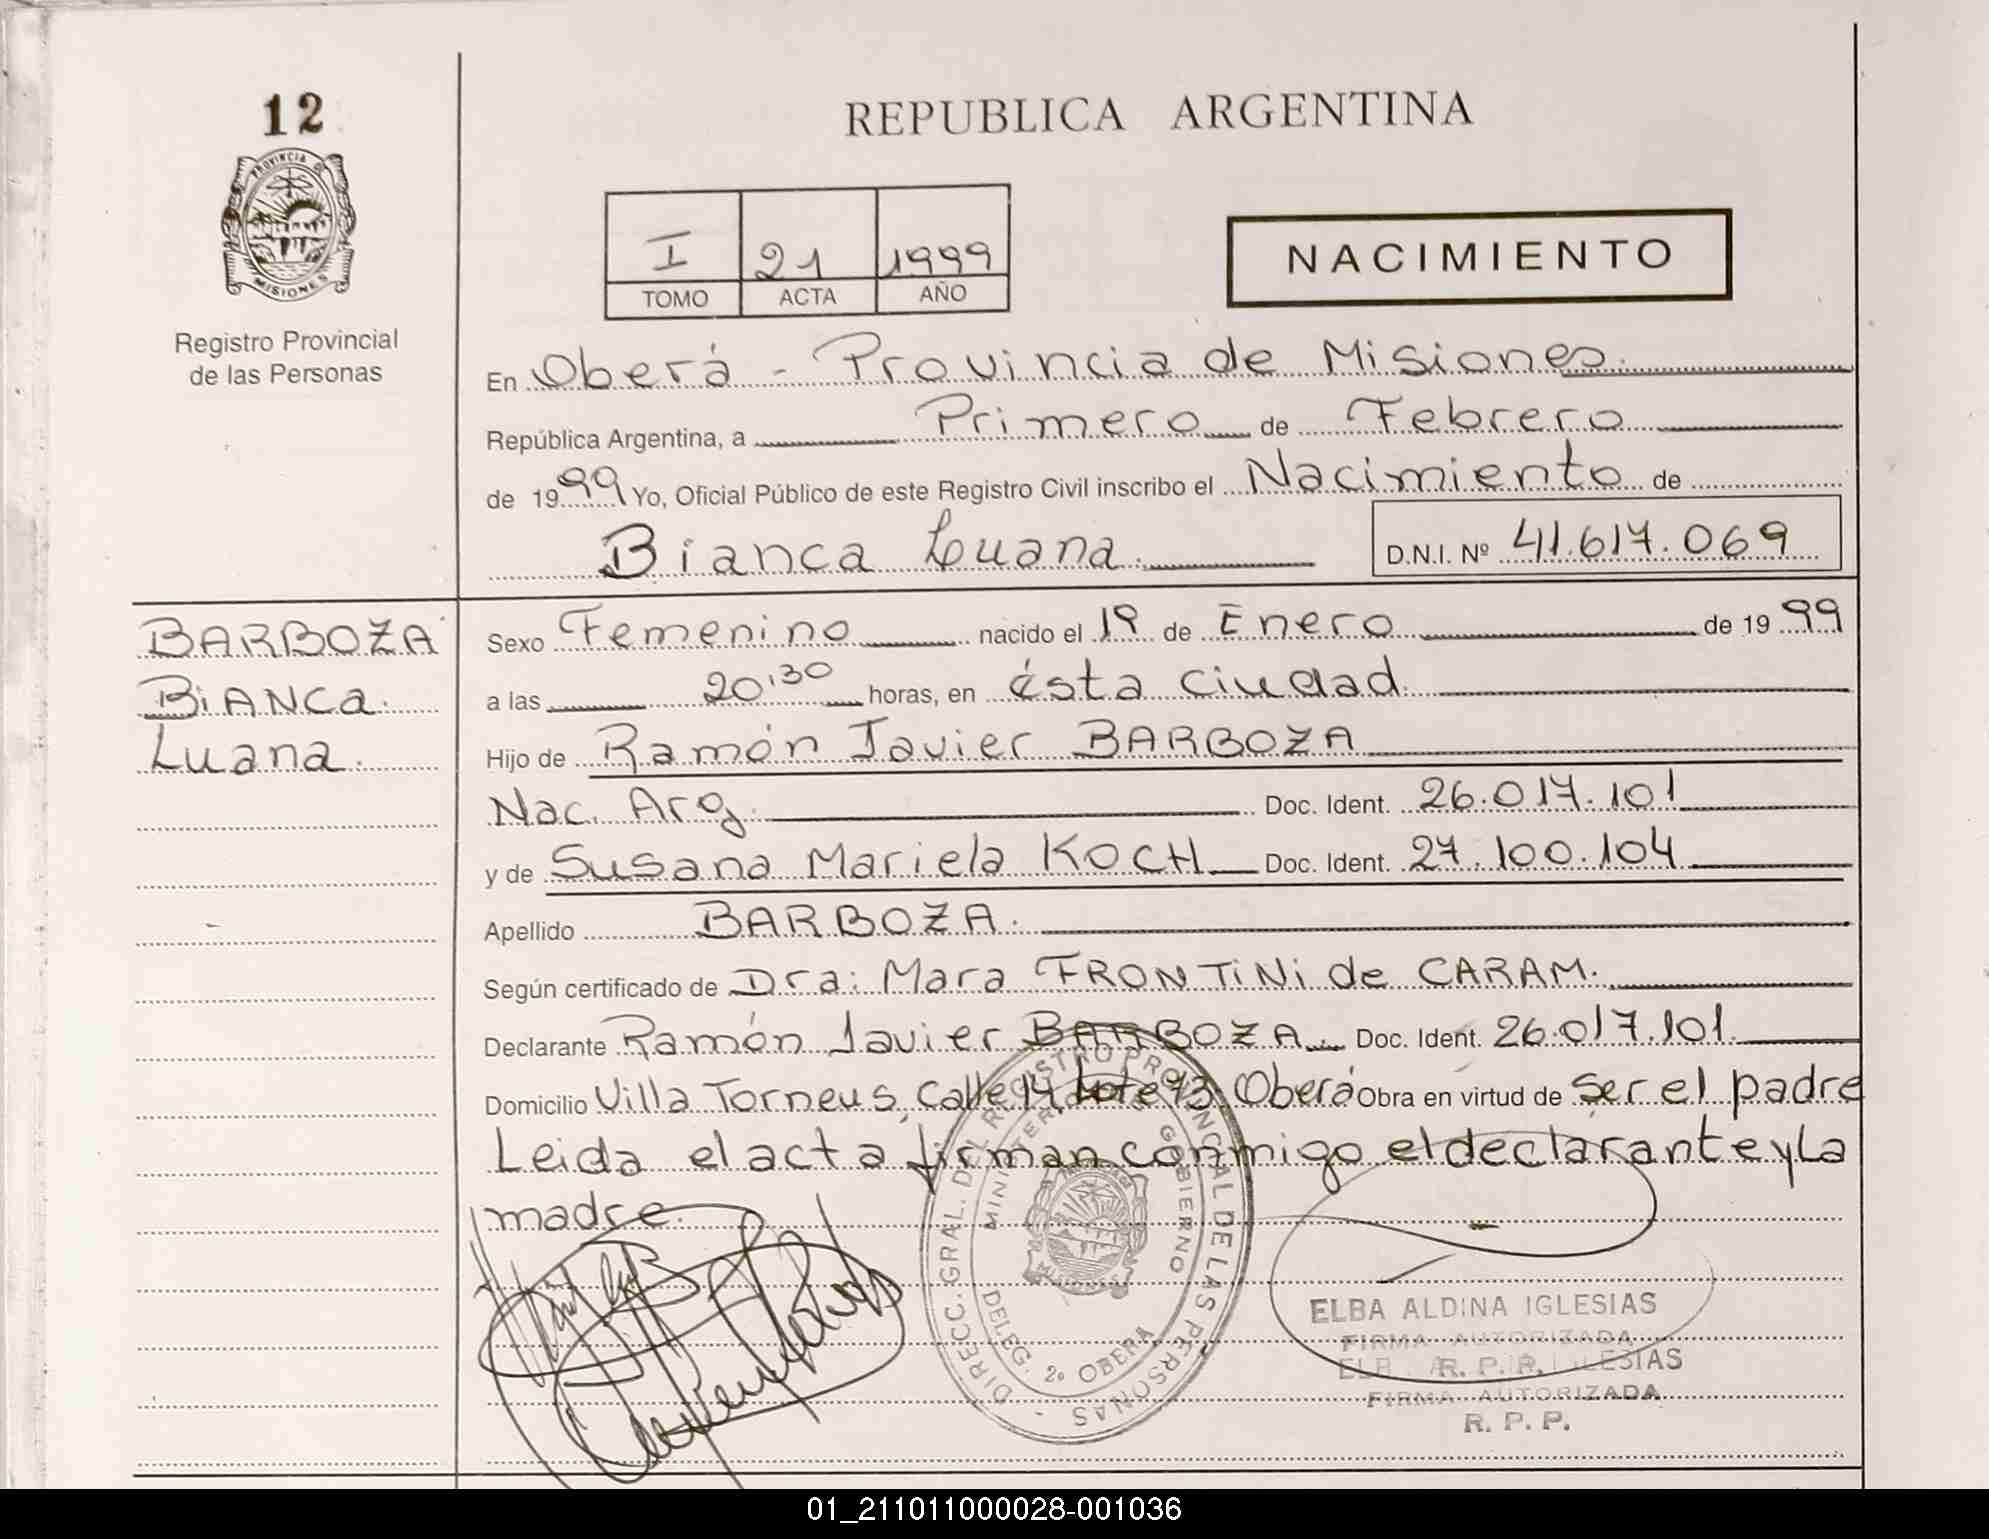 12
PROVINCIA DE
MISIONES
Registro Provincial
de las Personas
REPUBLICA ARGENTINA
I 21 1999
TOMO ACTA AÑO
NACIMIENTO
En Oberá - Provincia de Misiones
República Argentina, a Primero de Febrero
de 1999 Yo, Oficial Público de este Registro Civil inscribo el Nacimiento de
Bianca Luana. D.N.I. Nº 41.617.069
BARBOZA
BiANCa.
Luana.
Sexo Femenino nacido el 19 de Enero de 1999
a las 20,30 horas, en ésta ciudad.
Hijo de Ramón Javier BARBOZA
Nac. Arg. Doc. Ident. 26.017.101
y de Susana Mariela KOCH Doc. Ident. 27.100.104
Apellido BARBOZA.
Según certificado de Dra: Mara FRONTiNi de CARAM.
Declarante Ramón Javier BARBOZA Doc. Ident. 26.017.101.
Domicilio Villa Torneus, Calle 14, Lote 93, Oberá Obra en virtud de ser el padre
Leida el acta firman conmigo el declarante y La
madre.
DIRECC. GRAL. DEL REGISTRO PROVINCIAL DE LAS PERSONAS -
MINISTERIO DE GOBIERNO
MISIONES
DELEG. 2º OBERA
ELBA ALDINA IGLESIAS
FIRMA AUTORIZADA
R. P. P.
IGLESIAS
FIRMA AUTORIZADA
R. P. P.
01_211011000028-001036